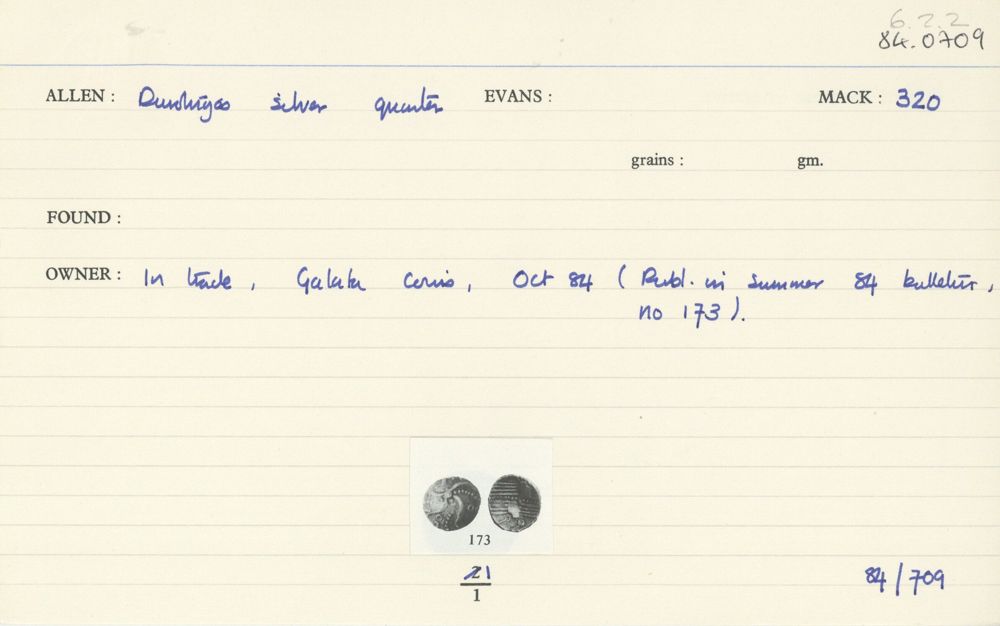 6.2.2
84.0709
ALLEN : Durotriges silver quarter EVANS : MACK : 320
grains : gm.
FOUND :
OWNER : In trade, Galata Coins, Oct 84 (Publ. in summer 84 bulletin,
no 173).
173
21
1
84/709